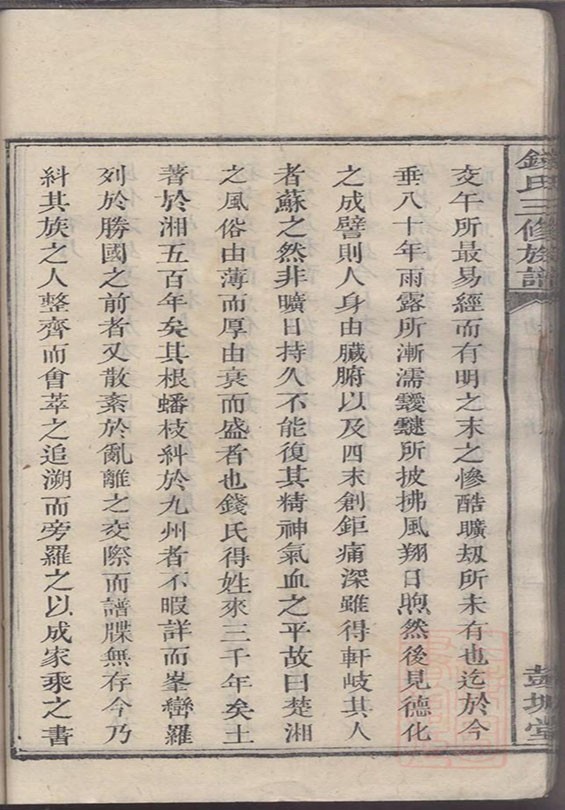 錢氏三修族譜
彭城堂
交午所最易經而有明之末之慘酷曠刼所未有也迄於今
垂八十年雨露所漸濡靉靆所披拂風翔日煦然後見德化
之成譬則人身由臟腑以及四末創鉅痛深雖得軒岐其人
者蘇之然非曠日持久不能復其精神氣血之平故曰楚湘
之風俗由薄而厚由衰而盛者也錢氏得姓來三千年矣土
著於湘五百年矣其根蟠枝糾於九州者不暇詳而峯巒羅
列於勝國之前者又散紊於亂離之交際而譜牒無存今乃
糾其族之人整齊而會萃之追溯而旁羅之以成家乘之書